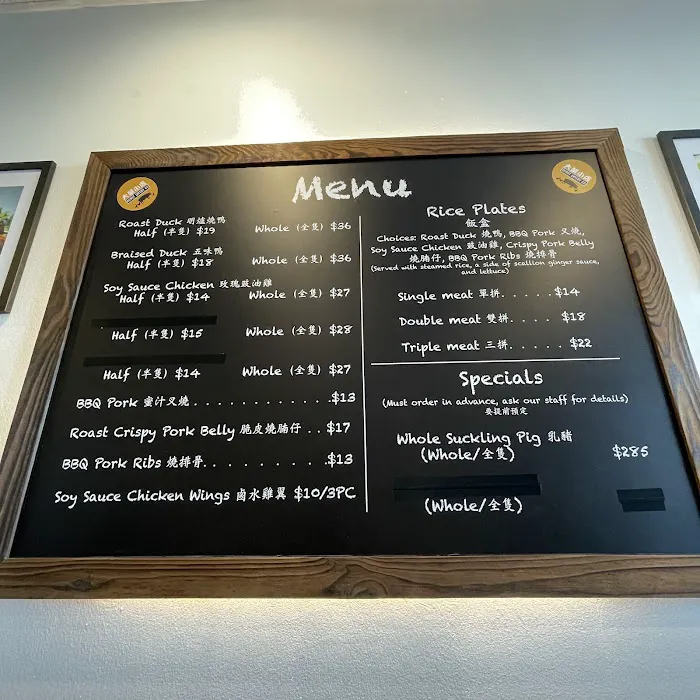 Menu
Roast Duck 明爐燒鴨
Half (半隻) $19 Whole (全隻) $36
Braised Duck 五味鴨
Half (半隻) $18 Whole (全隻) $36
Soy Sauce Chicken 玫瑰豉油雞
Half (半隻) $14 Whole (全隻) $27
Half (半隻) $15 Whole (全隻) $28
Half (半隻) $14 Whole (全隻) $27
BBQ Pork 蜜汁叉燒 . . . . . . . . . . . . .$13
Roast Crispy Pork Belly 脆皮燒腩仔 . . $17
BBQ Pork Ribs 燒排骨. . . . . . . . . .$13
Soy Sauce Chicken Wings 鹵水雞翼 $10/3PC
Rice Plates
飯盒
Choices: Roast Duck 燒鴨, BBQ Pork 叉燒,
Soy Sauce Chicken 豉油雞, Crispy Pork Belly
燒腩仔, BBQ Pork Ribs 燒排骨
(Served with steamed rice, a side of scallion ginger sauce,
and lettuce)
Single meat 單拼. . . . . .$14
Double meat 雙拼. . . . . $18
Triple meat 三拼. . . . . . $22
Specials
(Must order in advance, ask our staff for details)
要提前預定
Whole Suckling Pig 乳豬
(Whole/全隻) $285
(Whole/全隻)